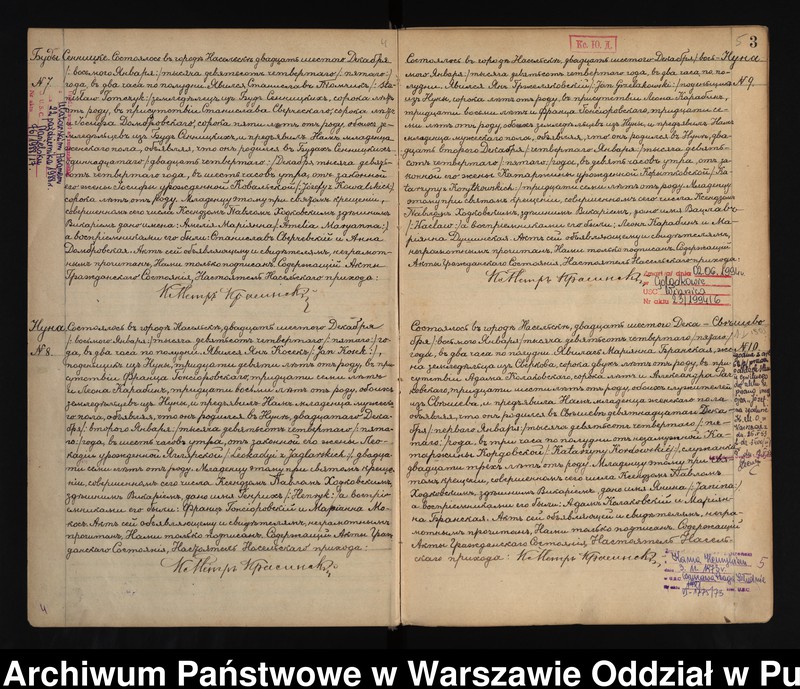 Буды Сенницке.
№ 7
Состоялось въ городѣ Насельскѣ, двадцать шестого Декабря
/: восьмого Января :/ тысяча девятьсотъ четвертаго /: пятаго :/
года, въ два часа по полудни. Явился Станиславъ Томчикъ /: Sta-
nisław Tomczyk :/ земледѣлецъ изъ Будъ Сенницкихъ, сорока лѣтъ
отъ роду, въ присутствіи Станислава Сверческаго, сорока лѣтъ
и Іосифа Домбровскаго, сорока пяти лѣтъ отъ роду, обоихъ зе-
мледѣльцевъ изъ Будъ Сенницкихъ, и предъявилъ Намъ младенца
женскаго пола, объявляя, что онъ родился въ Будахъ Сенницкихъ
одиннадцатаго /: двадцать четвертаго :/ Декабря тысяча девять-
сотъ четвертаго года, въ шесть часовъ утра, отъ законной
его жены Іосифы урожденной Ковальской /: Józefy z Kowalskich :/
сорока лѣтъ отъ роду. Младенцу этому при святомъ крещеніи,
совершенномъ сего числа Ксендзомъ Павломъ Ходковскимъ здѣшнимъ
Викаріемъ, дано имена: Амелія Маріянна /: Amelia Maryanna :/
а воспріемниками его были: Станиславъ Сверчевскій и Анна
Домбровская. Актъ сей объявляющему и свидѣтелямъ, неграмот-
нымъ прочитанъ, Нами только подписанъ. Содержащій Акты
Гражданскаго Состоянія, Настоятель Насельскаго прихода:
Кс Петръ Красинскій
Нуна
№ 8.
Состоялось въ городѣ Насельскѣ, двадцать шестого Декабря
/: восьмого Января :/ тысяча девятьсотъ четвертаго /: пятаго :/ го-
да, въ два часа по полудни. Явился Янъ Косекъ /: Jan Kosek :/,
поденщикъ изъ Нуны, тридцати девяти лѣтъ отъ роду, въ при-
сутствіи Франца Гонсіоровскаго, тридцати семи лѣтъ
и Леона Карабинъ, тридцати восьми лѣтъ отъ роду, обоихъ
земледѣльцевъ изъ Нуны, и предъявилъ Намъ младенца мужеска-
го пола, объявляя, что онъ родился въ Нунѣ, двадцатаго Дека-
бря /: второго Января :/ тысяча девятьсотъ четвертаго /: пята-
го :/ года, въ шесть часовъ утра, отъ законной его жены Лео-
кадіи урожденной Яглярской /: Leokadyi z Jaglarskich :/, двадца-
ти семи лѣтъ отъ роду. Младенцу этому при святомъ креще-
ніи, совершенномъ сего числа Ксендзомъ Павломъ Ходковскимъ,
здѣшнимъ Викаріемъ, дано имя Генрихъ /: Henryk :/ а воспріе-
мниками его были: Францъ Гонсіоровскій и Маріанна Мо-
косъ. Актъ сей объявляющему и свидѣтелямъ, неграмотнымъ
прочитанъ, Нами только подписанъ. Содержащій Акты Граж-
данскаго Состоянія, Настоятель Насельскаго прихода:
Кс Петръ Красинскій
4
Кс. 10. Л.
5 3
Нуна
№ 9.
Состоялось въ городѣ Насельскѣ, двадцать шестого Декабря /: вось-
мого Января :/ тысяча девятьсотъ четвертаго года, въ два часа по по-
лудни. Явился Янъ Гржелаковскій /: Jan Grzelakowski :/ поденщикъ
изъ Нуны, сорока лѣтъ отъ роду, въ присутствіи Леона Карабинъ,
тридцати восьми лѣтъ и Франца Гонсіоровскаго, тридцати се-
ми лѣтъ отъ роду, обоихъ земледѣльцевъ изъ Нуны, и предъявилъ Намъ
младенца мужескаго пола, объявляя, что онъ родился въ Нунѣ, два-
дцать второго Декабря /: четвертаго Января :/ тысяча девять-
сотъ четвертаго /: пятаго :/ года, въ девять часовъ утра, отъ за-
конной его жены Катаржины урожденной Корытковской /: Ka-
tarzyny z Korytkowskich :/ тридцати семи лѣтъ отъ роду. Младенцу
этому при святомъ крещеніи, совершенномъ сего числа Ксендзомъ
Павломъ Ходковскимъ, здѣшнимъ Викаріемъ, дано имя Вацлавъ
/: Wacław :/ а воспріемниками его были: Леонъ Карабинъ и Ма-
ріянна Душинская. Актъ сей объявляющему и свидѣтелямъ,
неграмотнымъ прочитанъ, Нами только подписанъ. Содержащій
Акты Гражданскаго Состоянія, Настоятель Насельскаго прихода:
Кс Петръ Красинскій
Zmarł(a) dnia 02.06.1994 r.
w Gołądkowie
USC Winnica
Nr aktu 23/1994/6
Свѣшево
№ 10.
Состоялось въ городѣ Насельскѣ, двадцать шестого Дека-
бря /: восьмого Января :/ тысяча девятьсотъ четвертаго /: пятаго :/
года, въ два часа по полудни. Явилась Маріянна Гранская, же-
на земледѣльца изъ Сверкова, сорока двухъ лѣтъ отъ роду, въ при-
сутствіи Адама Колаковскаго, сорока лѣтъ и Александра
ковскаго, тридцати шести лѣтъ отъ роду, обоихъ служителей
изъ Свѣшева, и предъявила Намъ младенца женскаго пола
объявляя, что онъ родился въ Свѣшевѣ девятнадцатаго Дека-
бря /: перваго Января :/ тысяча девятьсотъ четвертаго /: пя-
таго :/ года, въ три часа по полудни отъ незамужной Ка-
таржины Кордовской /: Katarzyny Kordowskiej :/, служанки
двадцати трехъ лѣтъ отъ роду. Младенцу этому при свя-
томъ крещеніи, совершенномъ сего числа Ксендзомъ Павломъ
Ходковскимъ, здѣшнимъ Викаріемъ, дано имя Янина /: Janina :/
а воспріемниками его были: Адамъ Колаковскій и Маріян-
на Гранская. Актъ сей объявляющей и свидѣтелямъ, негра-
мотнымъ прочитанъ, Нами только подписанъ. Содержащій
Акты Гражданскаго Состоянія, Настоятель Насель-
скаго прихода: Кс Петръ Красинскій
5
Archiwum Państwowe w Warszawie Oddział w Pu